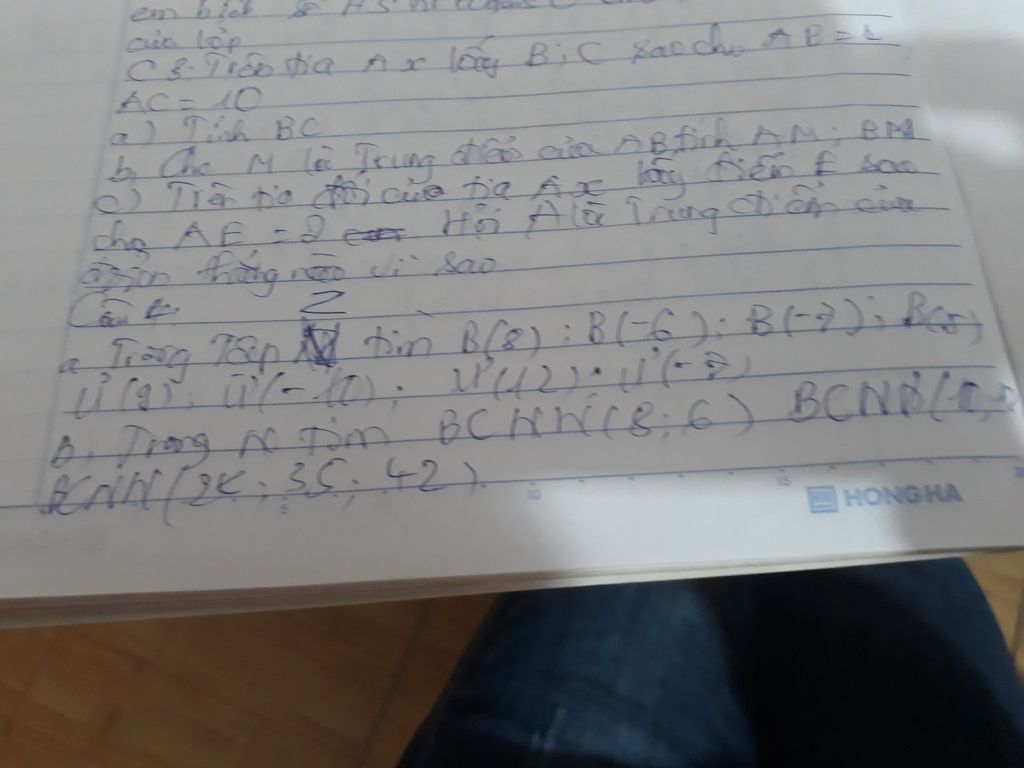 của lớp
C 3. Trên tia Ax lấy B; C sao cho AB =
AC = 10
a) Tính BC
b, Cho M là Trung điểm của AB tính AM; BM
c) Trên tia đối của tia Ax lấy điểm E sao
cho AE = 2 Hỏi A là Trung điểm của
đoạn thẳng nào vì sao
Câu 4.
Z
a Trong Tập tìm B(8); B(-6); B(-7); B(5)
Ư(9); Ư(-10); Ư(12); Ư(-7)
b, Trong N tìm BCNN(8; 6) BCNN(
BCNN( ; 35; 42)
5 10 15
HONG HA